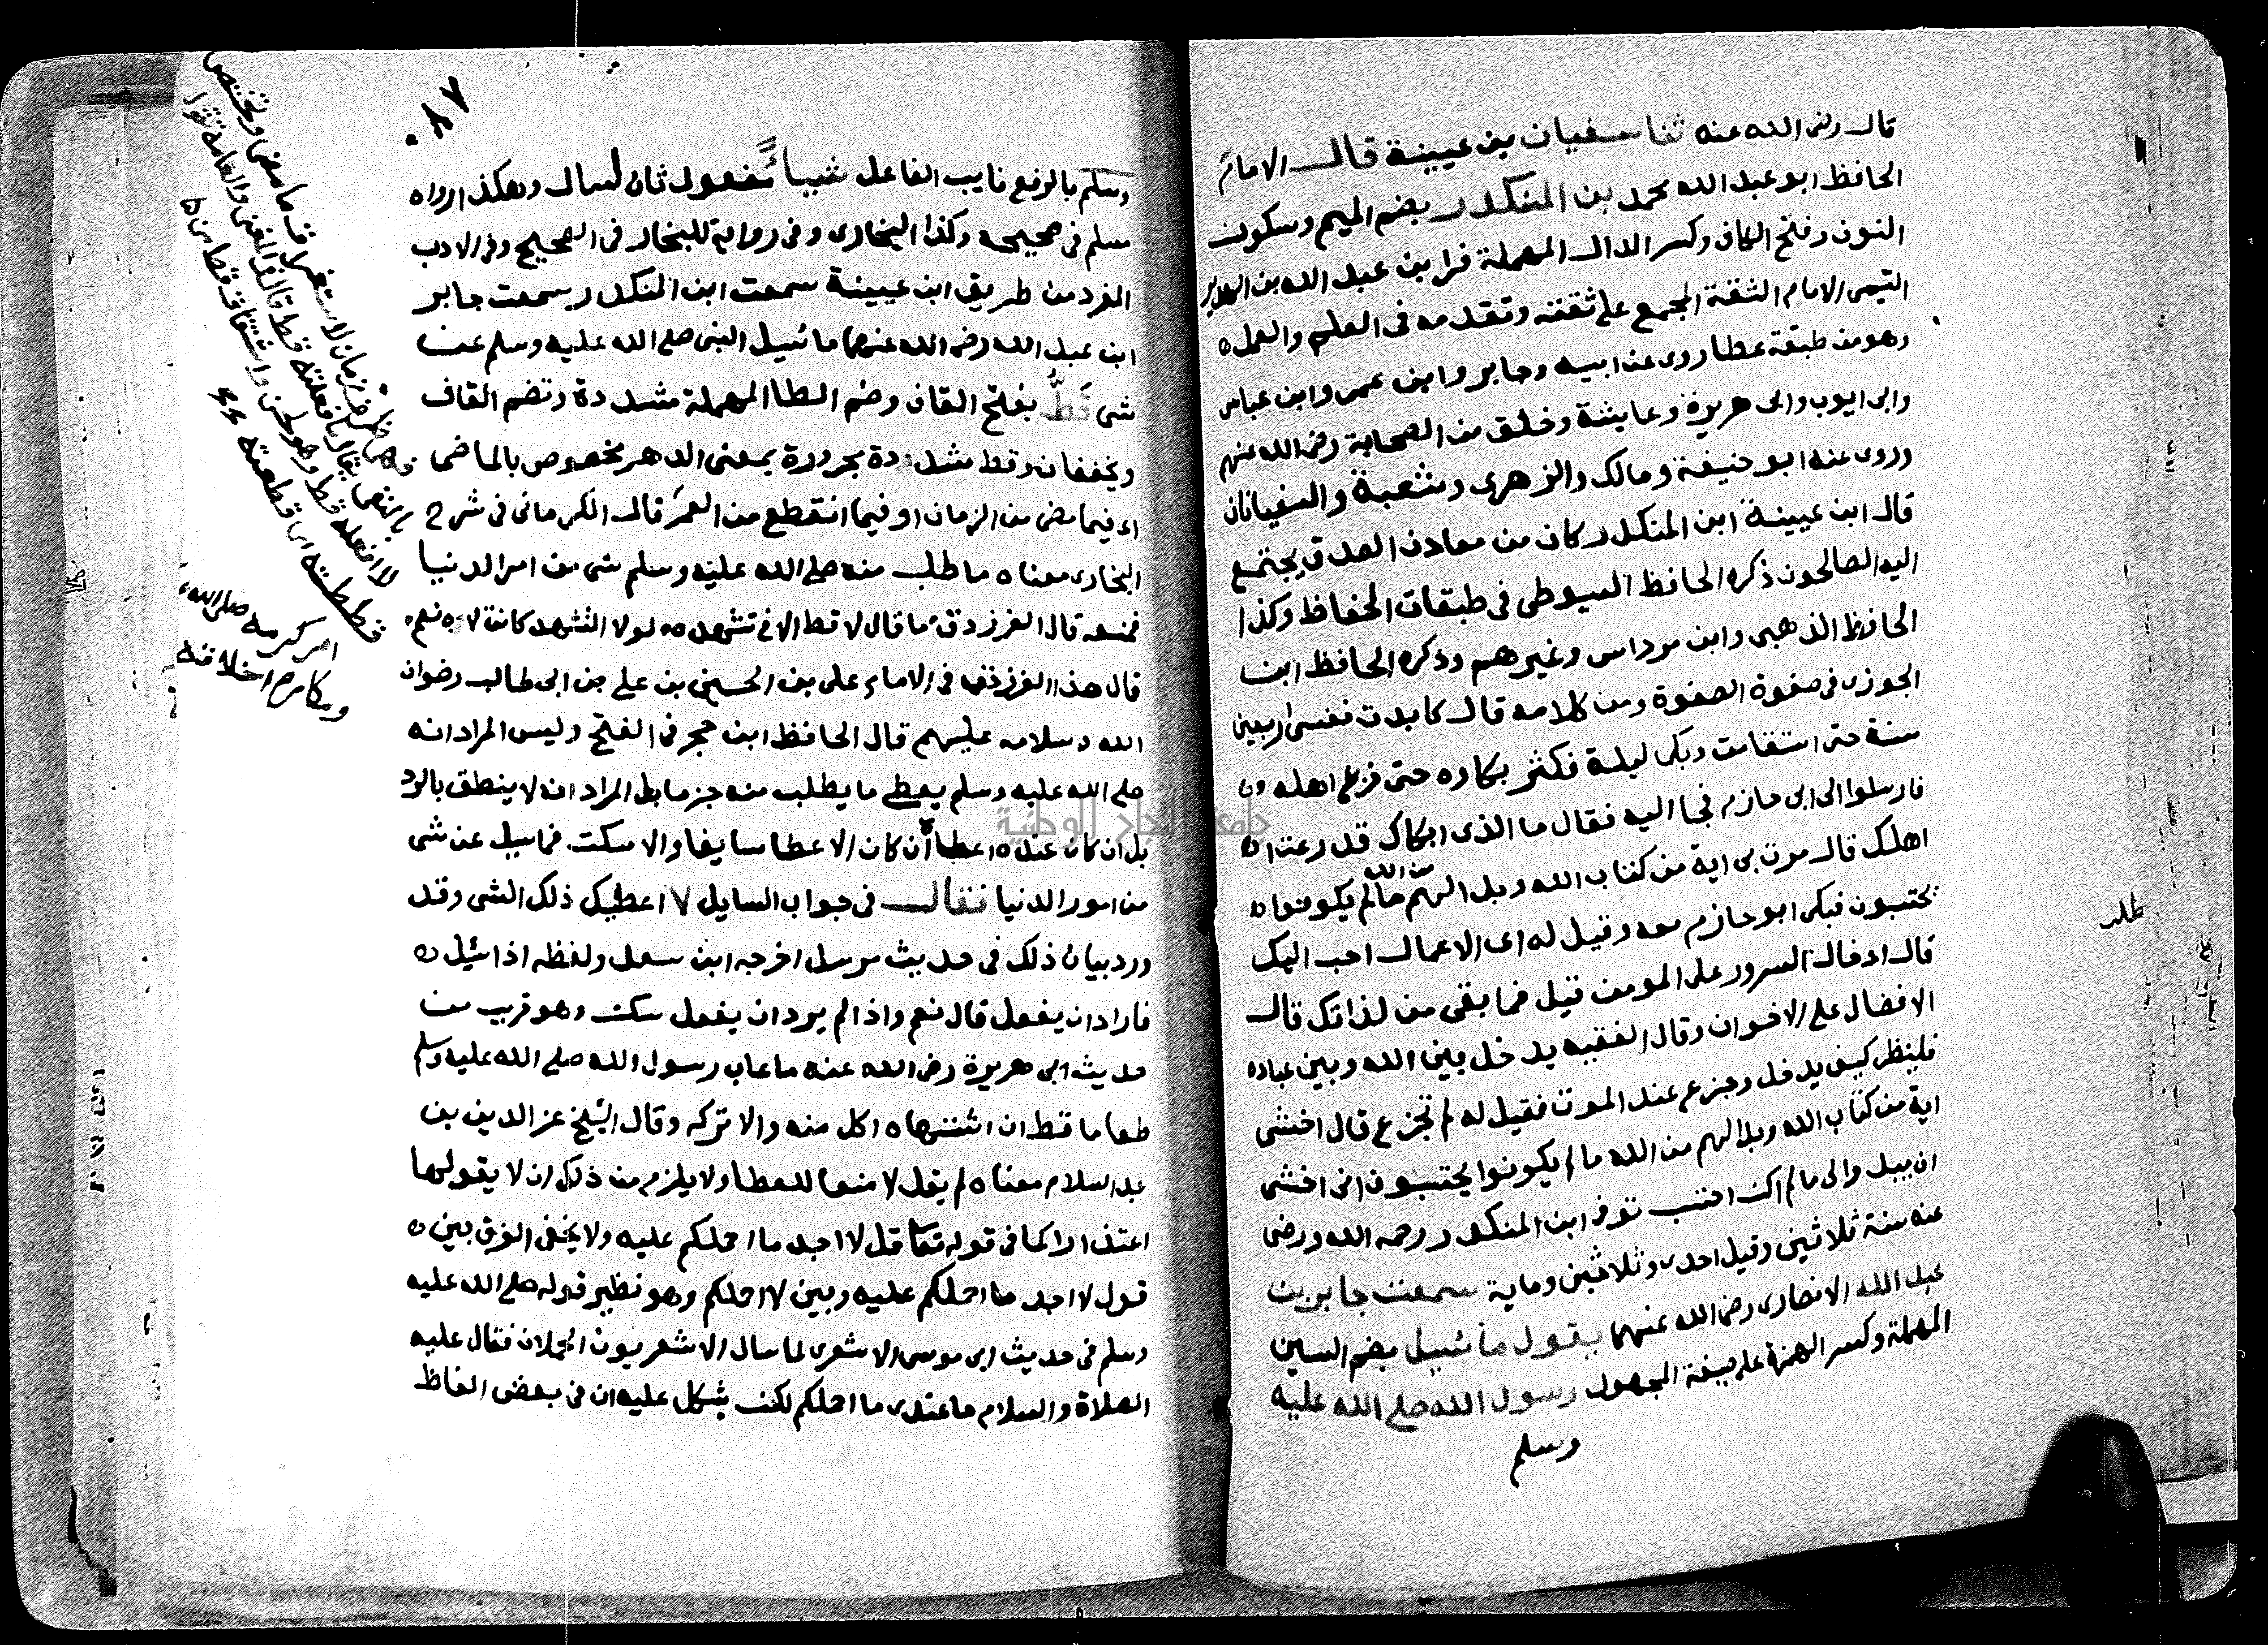 قال رضى الله عنه ثنا سفيان بن عيينة قال الامام
الحافظ ابو عبد الله محمد بن المنكدر بضم الميم وسكون
النون وفتح الكاف وكسر الدال المهملة فرا بن عبد الله بن الهدير
التيمى الامام الثقة المجمع على ثقته وتقدمه فى العلم والعمل
وهو من طبقة عطا روى عن ابيه وجابر وابن عمر وابن عباس
وابى ايوب وابى هريرة وعايشة وخلق من الصحابة رضى الله عنهم
وروى عنه ابو حنيفة ومالك والزهرى وشعبة والسفيانان
قال ابن عيينة ابن المنكدر كان من معادن الصدق يجتمع
اليه الصالحون ذكره الحافظ السيوطى فى طبقات الحفاظ وكذا
الحافظ الذهبى وابن مرداس وغيرهم وذكره الحافظ ابن
الجوزى فى صفوة الصفوة ومن كلامه قال كابدت نفسى اربعين
سنة حتى استقامت وبكى ليلة فكثر بكاوه حتى فزع اهله
فارسلوا الى ابى حازم فجا اليه فقال ما الذى ابكاك قد رعت
اهلك قال مرت بى اية من كتاب الله وبدا لهم من الله مالم يكونوا
يحتسبون فبكى ابو حازم معه وقيل له اى الاعمال احب اليك
قال ادخال السرور على المومن قيل فما بقى من لذاتك قال
الافضال على الاخوان وقال الفقيه يدخل بين الله وبين عباده
فلينظر كيف يدخل وجزع عند الموت فقيل له لم تجزع قال اخشى
اية من كتاب الله وبدا لهم من الله مالم يكونوا يحتسبون انى اخشى
ان يبدوا لى مالم اكن احتسب توفى ابن المنكدر رحمه الله ورضى
عنه سنة ثلاثين وقيل احدى وثلاثين وماية سمعت جابر بن
عبد الله الانصارى رضى الله عنهما يقول ما سُيِل بضم السين
المهملة وكسر الهمزة على صيغة المجهول رسول الله صلى الله عليه
وسلم
طلب
٨٧
وسلم بالرفع نايب الفاعل شيياً مفعول ثان لسال وهكذا رواه
مسلم فى صحيحه وكذا البخارى وفى رواية للبخارى فى الصحيح وفى الادب
المفرد من طريق ابن عيينة سمعت ابن المنكدر سمعت جابر
ابن عبد الله رضى الله عنهما ما سُيل النبى صلى الله عليه وسلم عن
شى قَطُّ بفتح القاف وضم الطا المهملة مشددة وتضم القاف
ويخففان وقط مشددة مجرورة بمعنى الدهر مخصوص بالماضى
اى فيما مضى من الزمان او فيما انقطع من العمر قال الكرمانى فى شرح
البخارى معناه ما طلب منه صلى الله عليه وسلم شى من امر الدنيا
فمنعه قال الفرزدق ما قال لا قط الا فى تشهده لولا التشهد كانت لاه نعم
قال هذا الفرزدق فى الامام على بن الحسين بن على بن ابى طالب رضوان
الله وسلامه عليهم قال الحافظ ابن حجر فى الفتح وليس المراد انه
صلى الله عليه وسلم يعطى ما يطلب منه جزما بل المراد انه لا ينطق بالرد
بل ان كان عنده اعطاه ان كان الاعطا سايغا والا سكت فما سيل عن شى
من امور الدنيا فقال فى جواب السايل لا اعطيك ذلك الشى وقد
ورد بيان ذلك فى حديث مرسل اخرجه ابن سعد ولفظه اذا سُيل
فاراد ان يفعل قال نعم واذا لم يرد ان يفعل سكت وهو قريب من
حديث ابى هريرة رضى الله عنه ما عاب رسول الله صلى الله عليه وسلم
طعاما قط ان اشتهاه اكل منه والا تركه وقال الشيخ عز الدين بن
عبد السلام معناه لم يقل لا منعا للعطا ولا يلزم من ذلك ان لا يقولها
اعتذارا كما فى قوله تعا قل لا اجد ما احملكم عليه ولا يخفى الفرق بين
قول لا اجد ما احملكم عليه وبين لا احملكم وهو نظير قوله صلى الله عليه
وسلم فى حديث ابى موسى الاشعرى لما سال الاشعريون الحملان فقال عليه
الصلاة والسلام ما عندى ما احملكم لكن يشكل عليه ان فى بعض الفاظ
ظرف زمان لاستغراق ما مضى وتختص
بالنفى يقال ما فعلته قط قال فى المغنى والعامة تقول
لا افعله قط وهو لحن واشتقاقه
قططته اى قطعته
امر كرمه صلى الله
ومكارم اخلاقه
جامعة النجاح الوطنية